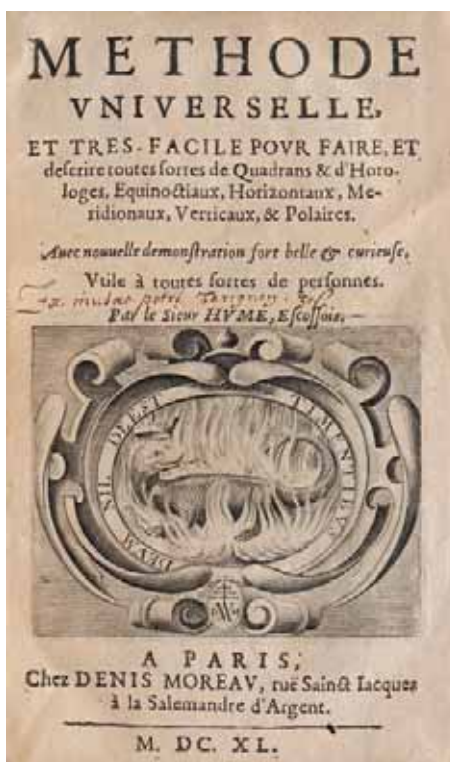 METHODE
VNIVERSELLE,
ET TRES-FACILE POVR FAIRE, ET
descrire toutes sortes de Quadrans & d'Horo-
loges, Equinoctiaux, Horizontaux, Me-
ridionaux, Verticaux, & Polaires.
Auec nouuelle demonstration fort belle & curieuse,
Vtile à toutes sortes de personnes.
Par le Sieur HVME, Escossois.
DEVM NIL DEEST TIMENTIBVS
A PARIS,
Chez DENIS MOREAV, ruë Sainct Iacques
à la Salemandre d'Argent.
M. DC. XL.